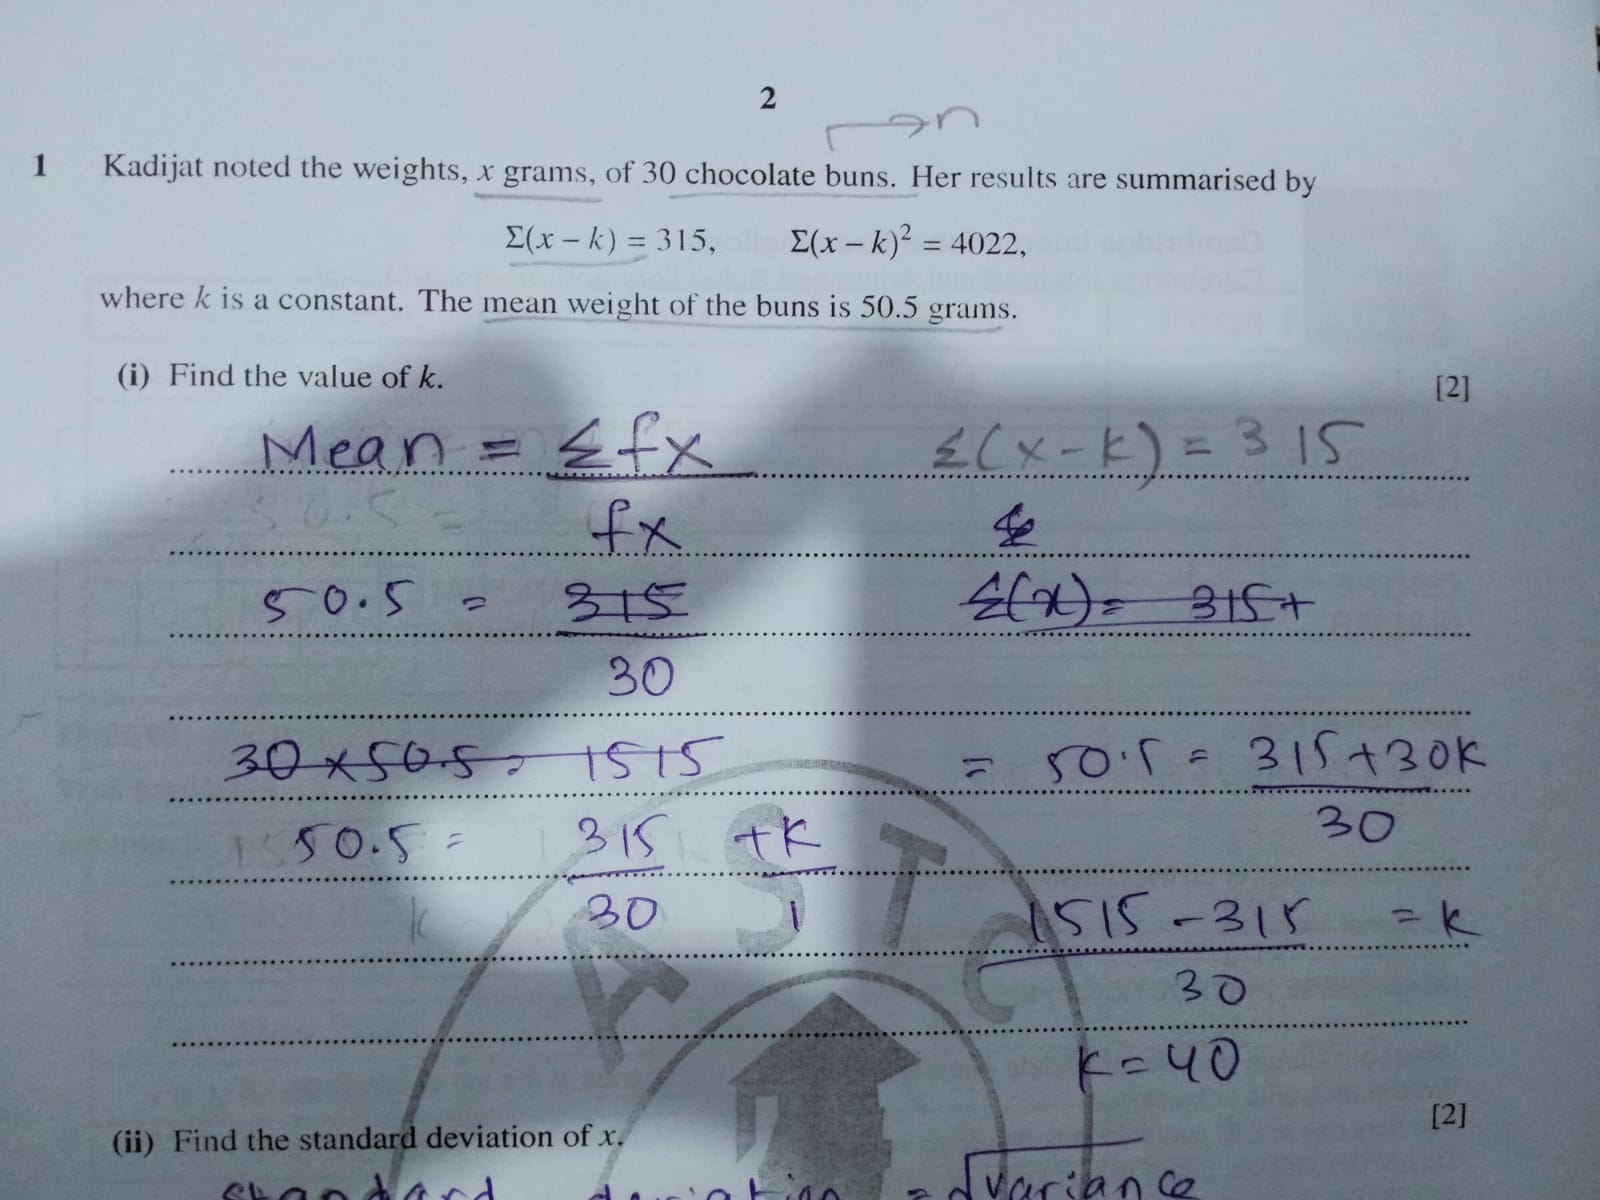 2
→n
1 Kadijat noted the weights, x grams, of 30 chocolate buns. Her results are summarised by
Σ(x – k) = 315, Σ(x – k)² = 4022,
where k is a constant. The mean weight of the buns is 50.5 grams.
(i) Find the value of k. [2]
Mean = Σfx Σ(x-k) = 315
50.5 = fx
50.5 = 315 Σ(x) = 315+
30
30 x 50.5 = 1515 = 50.5 = 315+30k
50.5 = 315 +k 30
k 30 1 1515 - 315 = k
30
k = 40
(ii) Find the standard deviation of x. [2]
standard deviation = √variance
ASTC